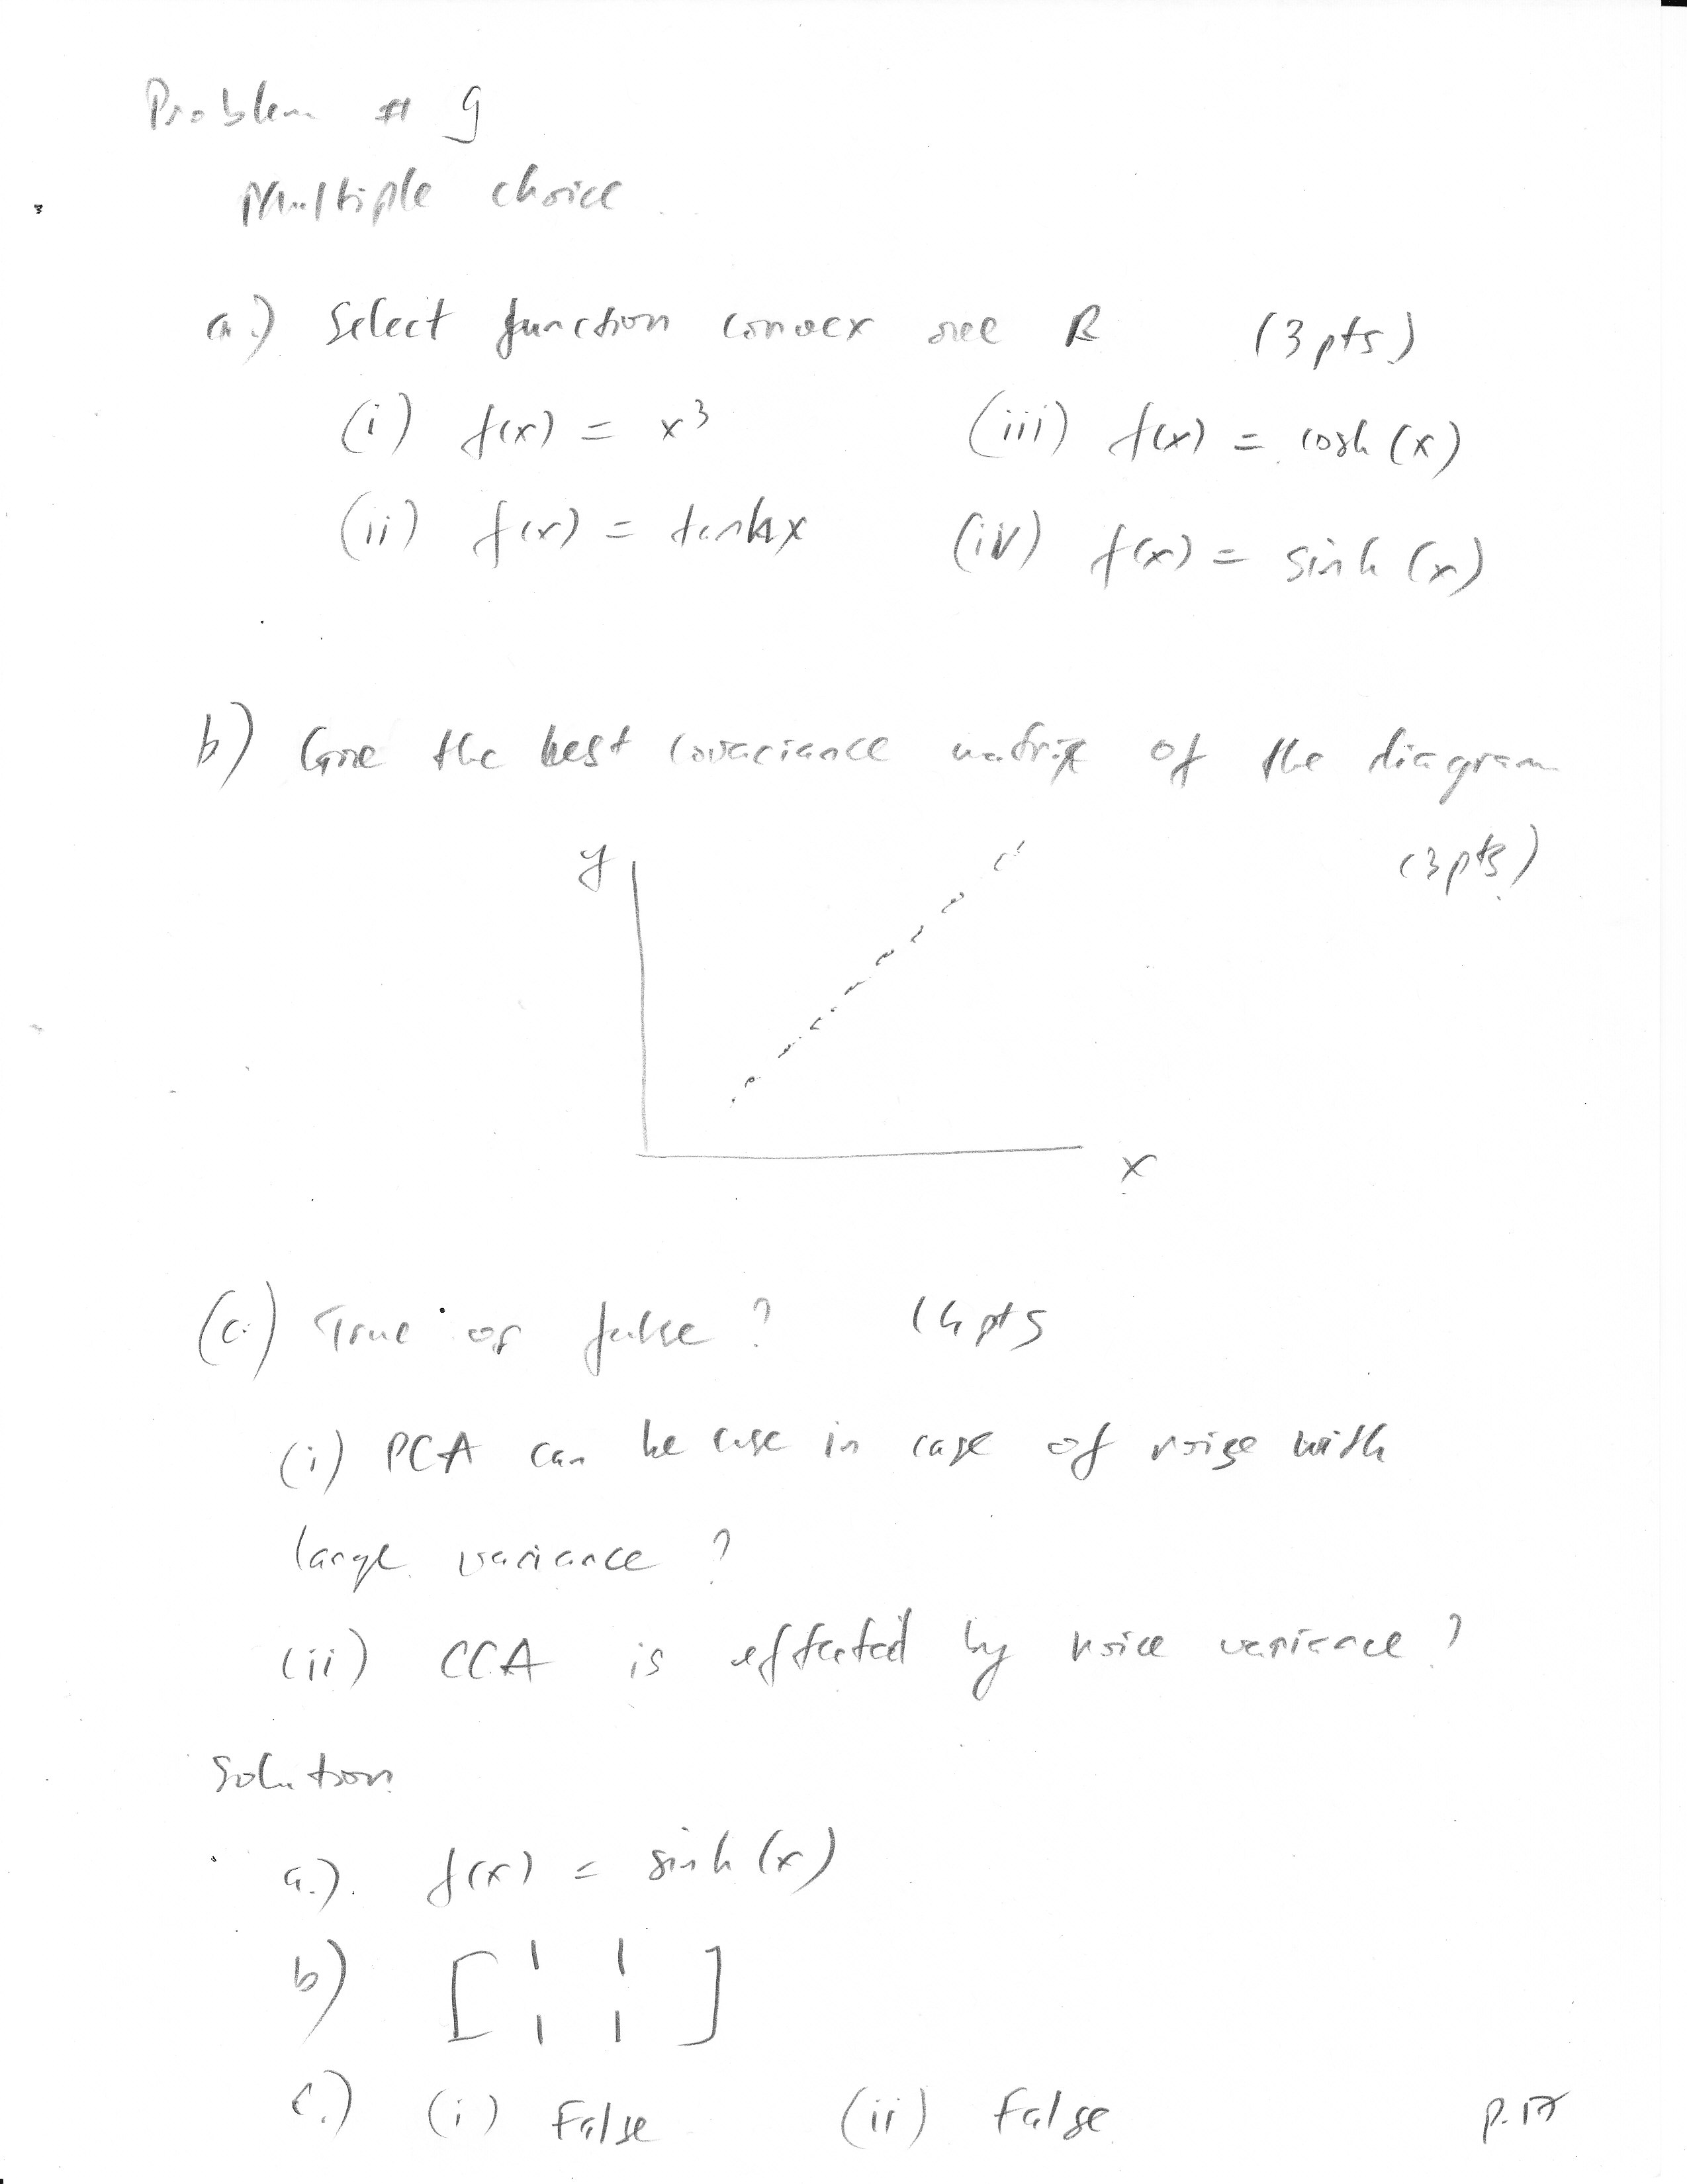 Problem # 9
Multiple choice
a.) Select function convex over R (3 pts)
(i) f(x) = x³ (iii) f(x) = cosh (x)
(ii) f(x) = tanhx (iv) f(x) = sinh (x)
b) Give the best covariance matrix of the diagram
(3 pts)
y
x
(c.) True or false? (4 pts
(i) PCA can be use in case of noise with
large variance ?
(ii) CCA is effected by noice variance ?
Solution
a.). f(x) = sinh (x)
b) [ 1 1 ]
1 1
c.) (i) False (ii) False
p. 17